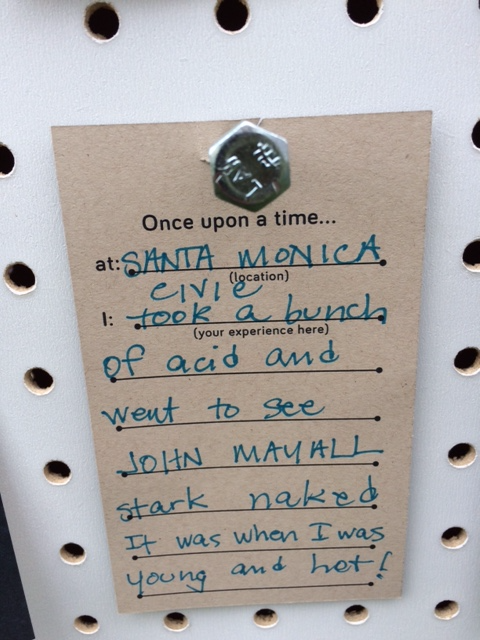 Once upon a time...
at: SANTA MONICA
(location)
CIVIC
I: took a bunch
(your experience here)
of acid and
went to see
JOHN MAYALL
stark naked
It was when I was
young and hot!